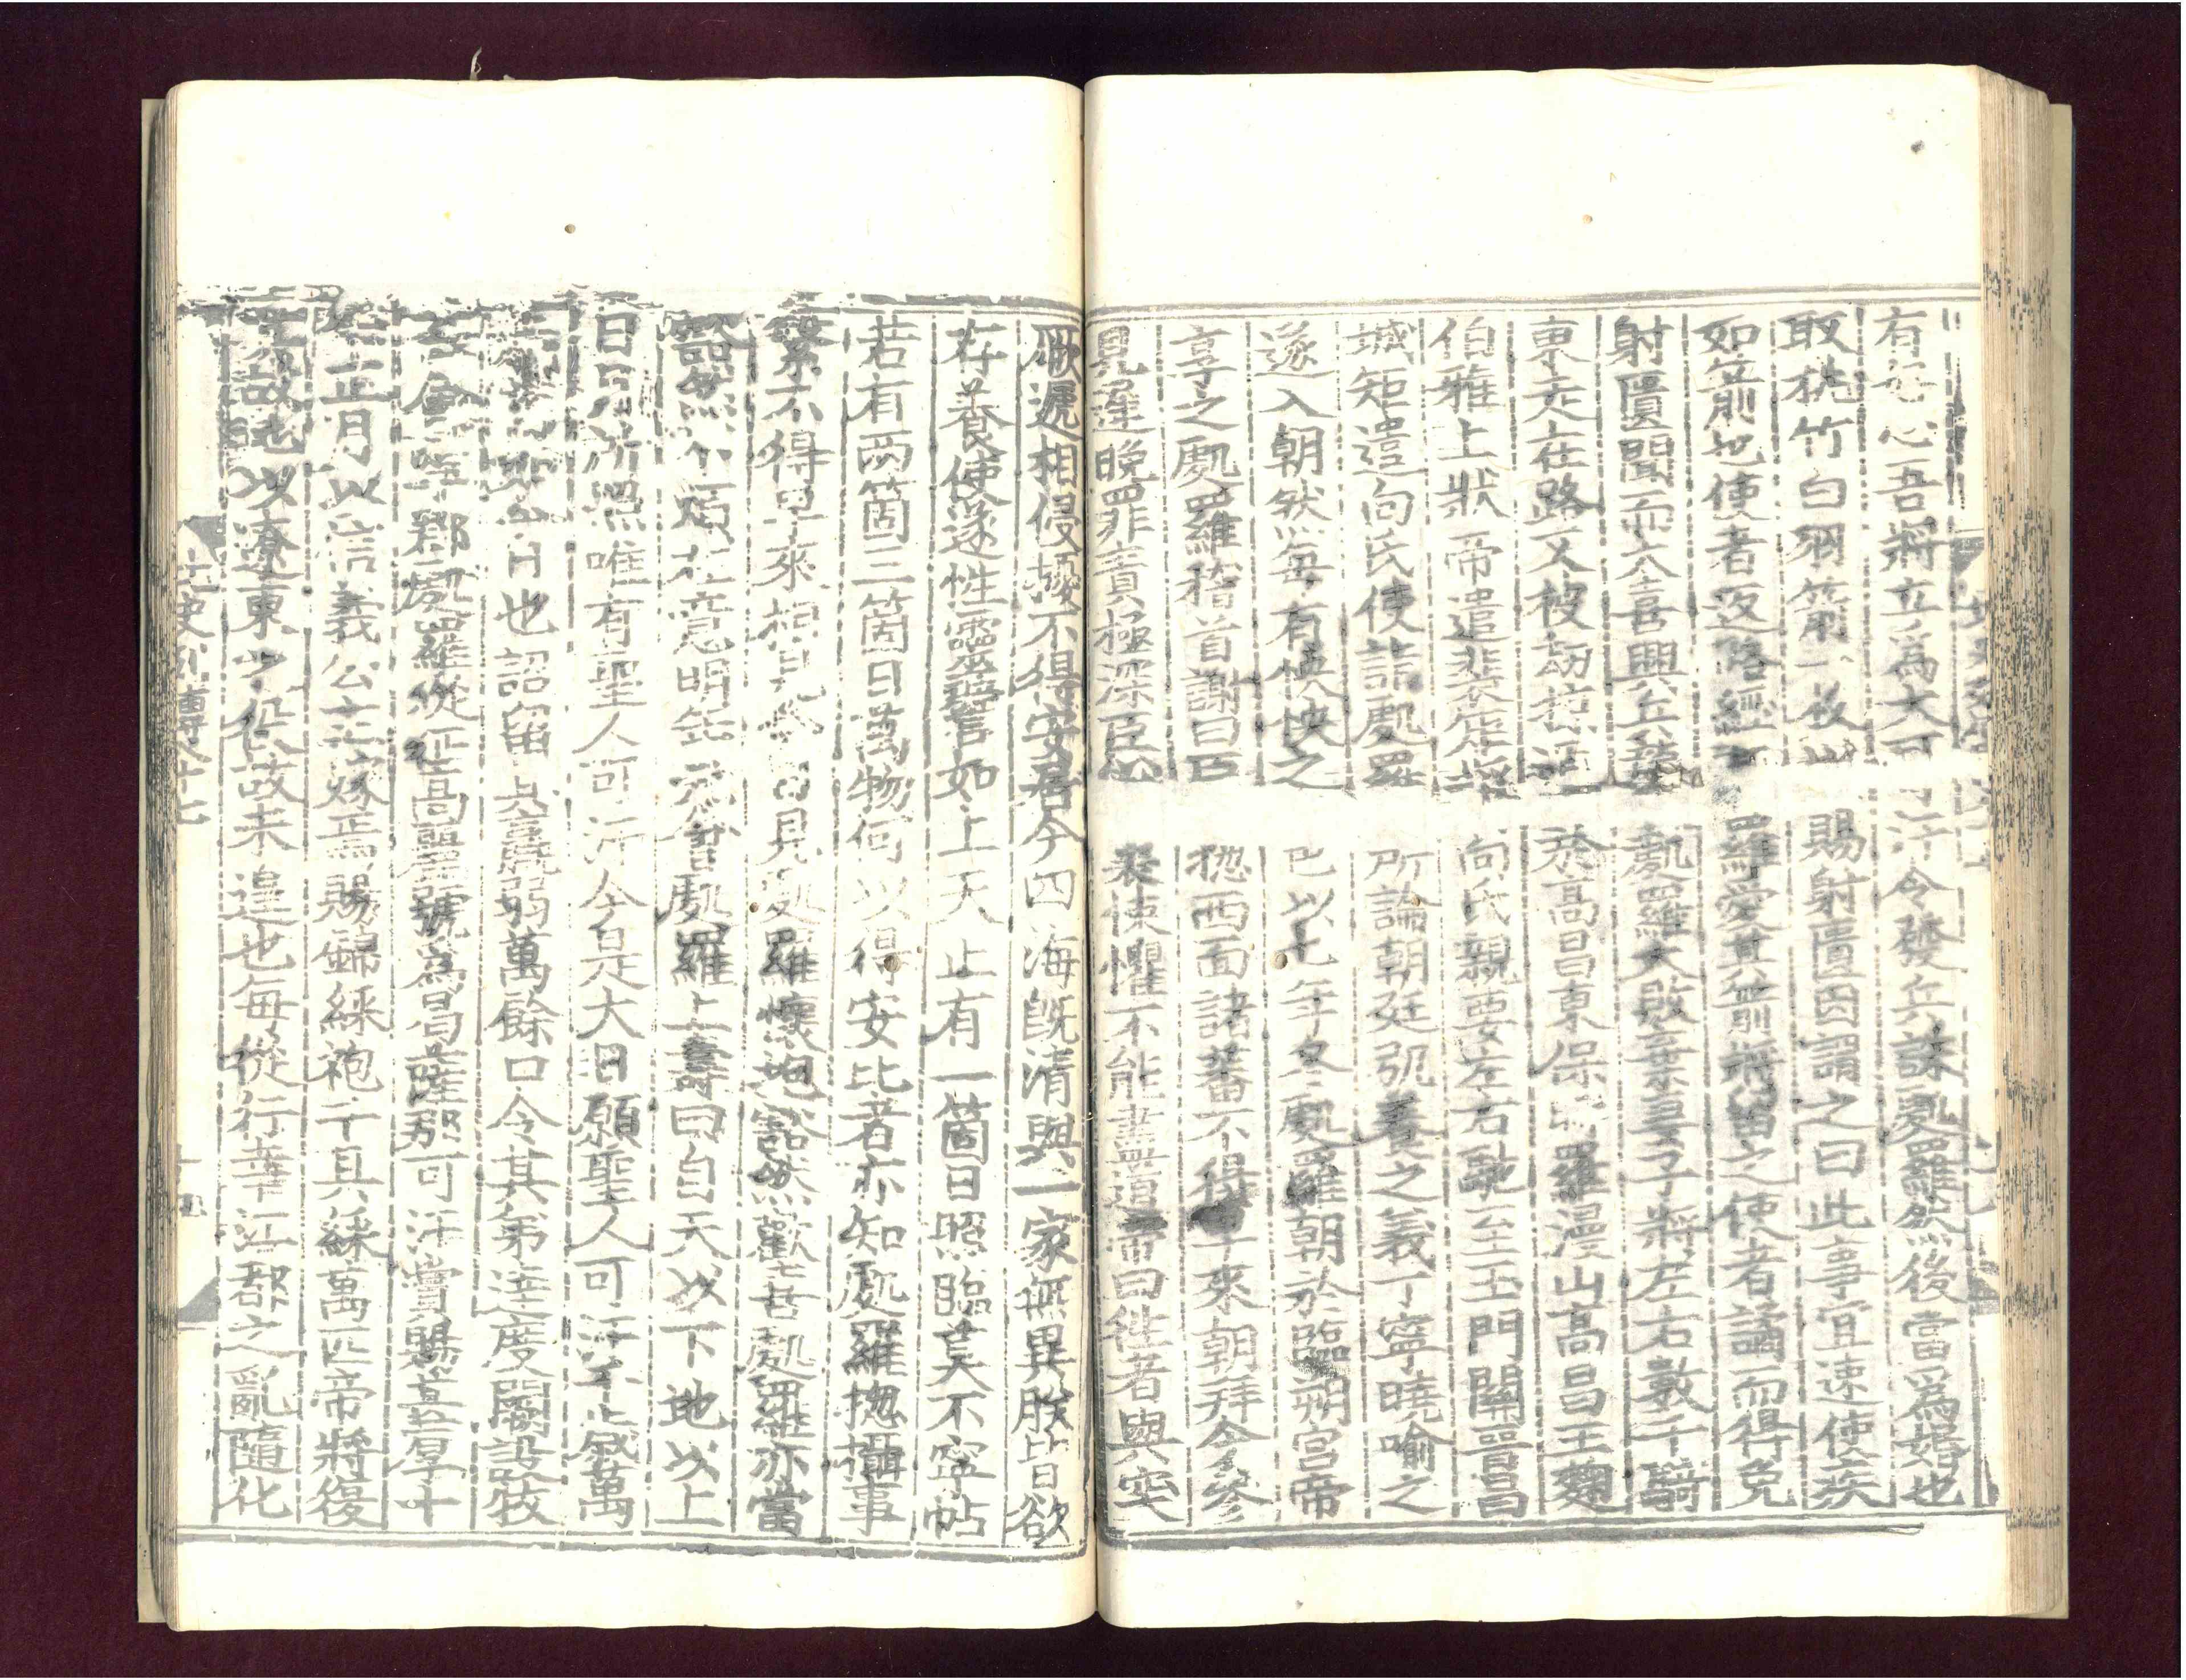 有好心吾將立爲大可汗令發兵誅處羅然後當爲婚也
取桃竹白羽箭一枚以賜射匱因謂之曰此事宜速使疾
如箭也使者返路經處羅愛其箭將留之使者譎而得免
射匱聞而大喜興兵襲處羅大敗棄妻子將左右數千騎
東走在路又被劫掠遁於高昌東保時羅漫山高昌王麴
伯雅上狀帝遣裴矩將向氏親要左右馳至玉門關晉昌
城矩遣向氏使詣處羅所論朝廷弘養之義丁寧曉喻之
遂入朝然每有怏怏之色以七年冬處羅朝於臨朔宮帝
享之處羅稽首謝曰臣揔西面諸蕃不得早來朝拜今參
見遲晚罪責極深臣心裏悚懼不能盡道帝曰往者與突
厥遞相侵擾不得安居今四海既清與一家無異朕皆欲
存養使遂性靈譬如上天止有一箇日照臨莫不寧帖
若有兩箇三箇日萬物何以得安比者亦知處羅揔攝事
繁不得早來相見今日見處羅懷抱豁然歡喜處羅亦當
豁然不煩在意明年元會處羅上壽曰自天以下地以上
日月所照唯有聖人可汗今是大日願聖人可汗千歲萬
歲常如今日也詔留其羸弱萬餘口令其弟達度闕設牧
畜會寧郡處羅從征高麗號爲曷薩那可汗賞賜甚厚十
年正月以信義公主嫁焉賜錦綵袍千具綵萬匹帝將復
其故地以遼東之役故未遑也每從行幸江都之亂隨化
北史列傳八十七